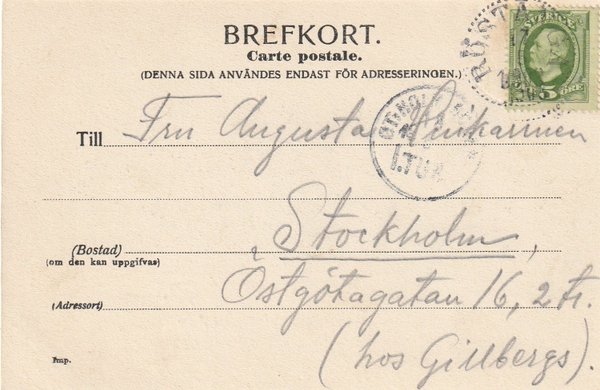 BREFKORT.
Carte postale.
(DENNA SIDA ANVÄNDES ENDAST FÖR ADRESSERINGEN.)
SVERIGE
5 ÖRE
Till Fru Augusta
1.TUR
Stockholm,
(Bostad)
(om den kan uppgifvas)
Östgötagatan 16, 2 tr.
(Adressort)
(hos Gillbergs.)
Imp.